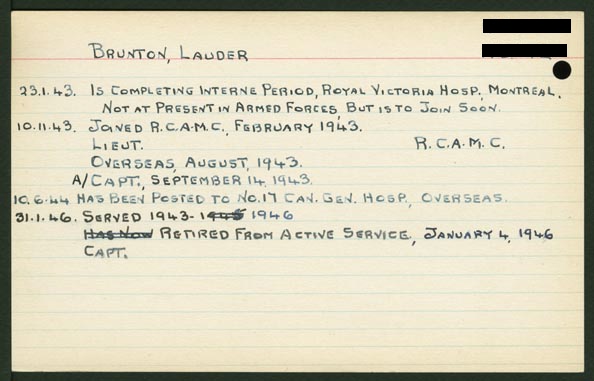 BRUNTON, LAUDER
23.1.43. IS COMPLETING INTERNE PERIOD, ROYAL VICTORIA HOSP, MONTREAL.
NOT AT PRESENT IN ARMED FORCES, BUT IS TO JOIN SOON.
10.11.43. JOINED R.C.A.M.C., FEBRUARY 1943.
LIEUT. R.C.A.M.C.
OVERSEAS, AUGUST, 1943.
A/CAPT., SEPTEMBER 14, 1943.
10.6.44 HAS BEEN POSTED TO NO.17 CAN. GEN. HOSP., OVERSEAS.
31.1.46. SERVED 1943-1945 1946
HAS NOW RETIRED FROM ACTIVE SERVICE, JANUARY 4, 1946
CAPT.